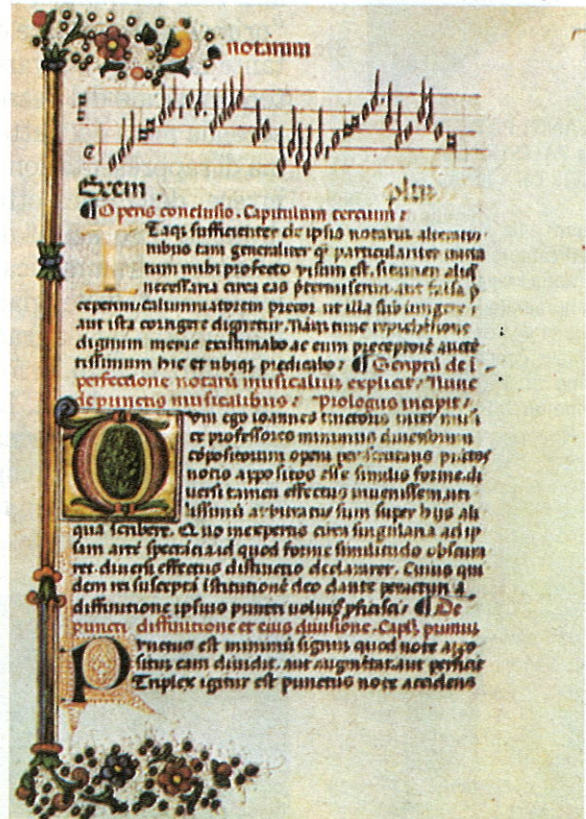 notarum
Exem plum
Operis conclusio. Capitulum tercium:
Itaqz sufficienter de ipsis notarum alteratio
nibus tam generaliter qz particulariter
tum mihi profecto visum est. si tamen aliqz
necessaria circa eas ptermiserim aut falsa p
ceperim: calumniatorem precor ut illa subiungere:
aut ista corrigere dignetur. Naqz tunc reprehensione
dignum merie existimabo ac eum preceptore aucte
tissimum hic et ubiqz predicabo: Scriptū de i
perfectione notarū musicalium explicit: Nunc
de punctis musicalibus: Prologus incipit:
Quom ego ioannes tinctoris inter musi
ce professores minimus diuersorum
cōpositorum opera perscrutans punctos
notis appositos esse similis forme. di
uersi tamen effectus inuenissem. uti
lissimū arbitratus sum super hijs ali
qua scribere. Quo inexpertis circa singularia ad ip
sam artē spectācia id quod forme similitudo obscura
ret. diuersi effectus distinctio declararet. Cuius qui
dem rei suscepta istitutionē deo dante peracturi a
diffinitione ipsius puncti voluiqz pficisci: De
puncti diffinitione et eius diuisione. Capłz primū
Punctus est minimū signum quod note appo
situm eam diuidit. aut augmētat. aut perficit
Triplex igitur est punctus note accidens